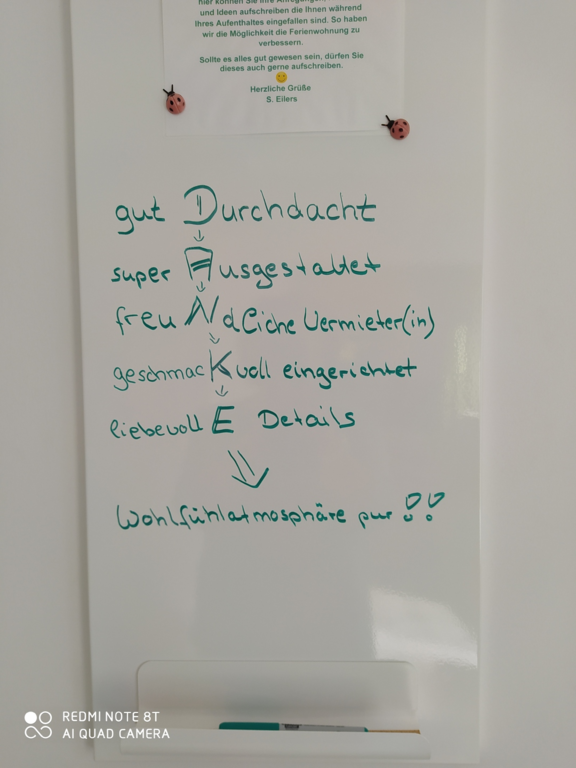 und Ideen aufschreiben die Ihnen während
Ihres Aufenthaltes eingefallen sind. So haben
wir die Möglichkeit die Ferienwohnung zu
verbessern.
Sollte es alles gut gewesen sein, dürfen Sie
dieses auch gerne aufschreiben.
Herzliche Grüße
S. Eilers
gut Durchdacht
super Ausgestattet
freuNdliche Vermieter(in)
geschmacKvoll eingerichtet
liebevoll E Details
Wohlfühlatmosphäre pur !!
REDMI NOTE 8T
AI QUAD CAMERA